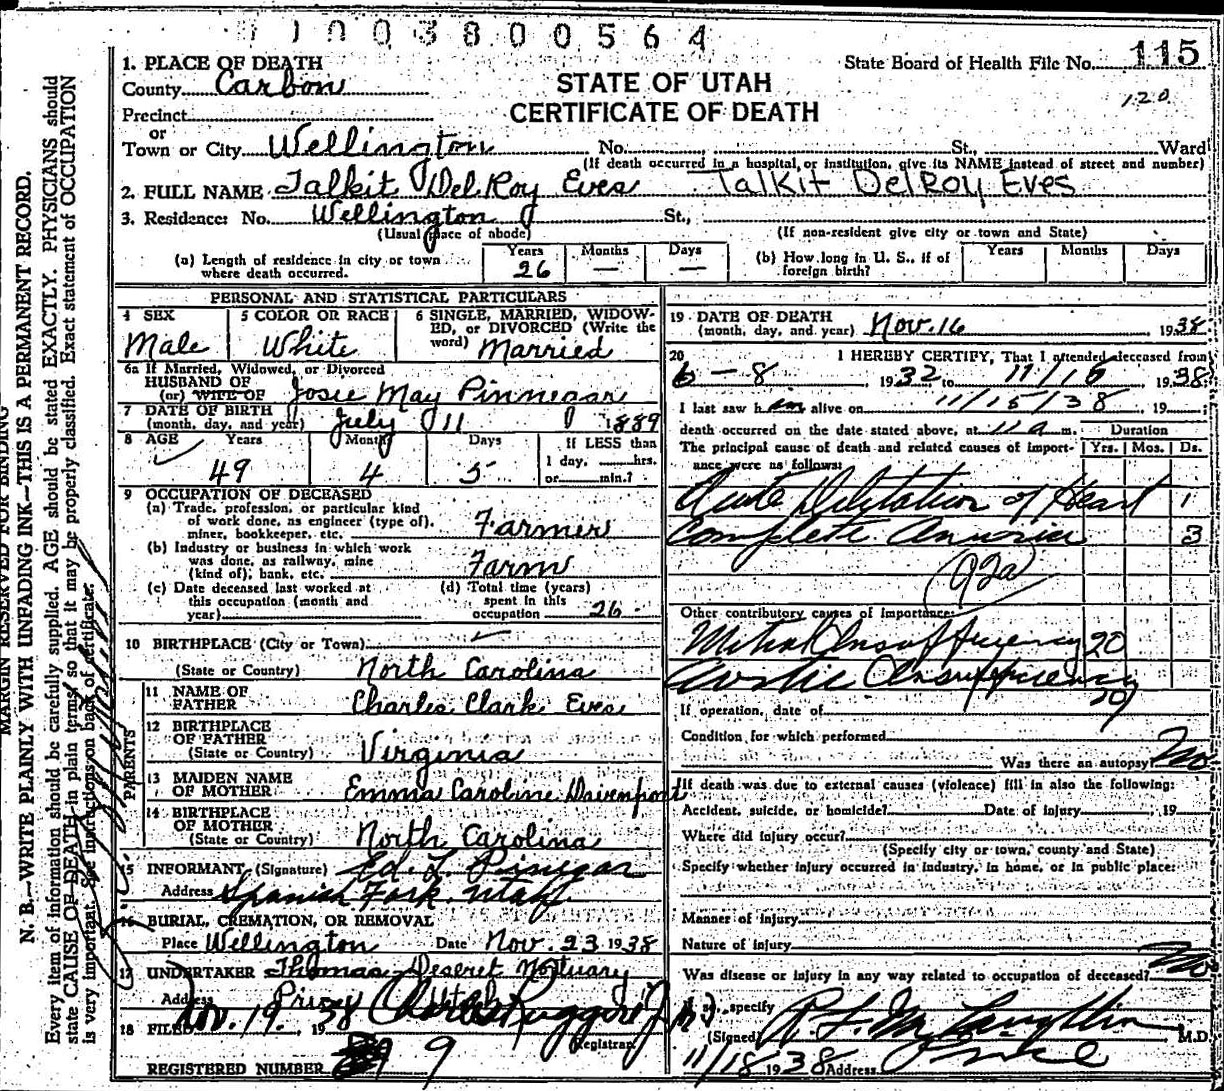 5 1 0 0 3 8 0 0 5 6 4
State Board of Health File No. 115
120
STATE OF UTAH
CERTIFICATE OF DEATH
1. PLACE OF DEATH
County Carbon
Precinct
or
Town or City Wellington No. St., Ward
(If death occurred in a hospital or institution, give its NAME instead of street and number)
2. FULL NAME Talkit DelRoy Eves Talkit DelRoy Eves
3. Residence: No. Wellington St.,
(Usual place of abode) (If non-resident give city or town and State)
(a) Length of residence in city or town where death occurred. Years 26 Months — Days —
(b) How long in U. S., if of foreign birth? Years Months Days
PERSONAL AND STATISTICAL PARTICULARS
4 SEX Male
5 COLOR OR RACE White
6 SINGLE, MARRIED, WIDOWED, or DIVORCED (Write the word) Married
6a If Married, Widowed, or Divorced
HUSBAND OF
(or) WIFE OF Josie May Pinnegar
7 DATE OF BIRTH
(month, day, and year) July 11 1889
8 AGE Years 49 Months 4 Days 5 If LESS than 1 day, hrs. or min.?
9 OCCUPATION OF DECEASED
(a) Trade, profession, or particular kind of work done, as engineer (type of), miner, bookkeeper, etc. Farmer
(b) Industry or business in which work was done, as railway, mine (kind of), bank, etc. Farm
(c) Date deceased last worked at this occupation (month and year)
(d) Total time (years) spent in this occupation 26
10 BIRTHPLACE (City or Town)
(State or Country) North Carolina
PARENTS
11 NAME OF FATHER Charles Clark Eves
12 BIRTHPLACE OF FATHER
(State or Country) Virginia
13 MAIDEN NAME OF MOTHER Emma Caroline Davenport
14 BIRTHPLACE OF MOTHER
(State or Country) North Carolina
15 INFORMANT (Signature) Ed. L. Pinegar
Address Spanish Fork, Utah
16 BURIAL, CREMATION, OR REMOVAL
Place Wellington Date Nov. 23 1938
17 UNDERTAKER Thomas Deseret Mortuary
Address Price, Utah
18 FILED Nov. 19. 1938 Charles Ruggeri Jr
Registrar
REGISTERED NUMBER 9
19 DATE OF DEATH
(month, day, and year) Nov. 16 1938
20 I HEREBY CERTIFY, That I attended deceased from
6-8, 1932 to 11/16, 1938
I last saw him alive on 11/15/38, 19 ;
death occurred on the date stated above, at 11 a m. Duration
The principal cause of death and related causes of importance were as follows: Yrs. Mos. Ds.
Acute Dilatation of Heart 1
Complete Anuria 3
(92a)
Other contributory causes of importance:
Mitral Insufficiency 20
Aortic Insufficiency 20
If operation, date of
Condition for which performed
Was there an autopsy? No
If death was due to external causes (violence) fill in also the following:
Accident, suicide, or homicide? Date of injury , 19
Where did injury occur?
(Specify city or town, county and State)
Specify whether injury occurred in industry, in home, or in public place:
Manner of injury
Nature of injury
Was disease or injury in any way related to occupation of deceased? No
specify
(Signed) R. L. McLaughlin M.D.
11/18 1938 Address Price
MARGIN RESERVED FOR BINDING
N. B.—WRITE PLAINLY WITH UNFADING INK—THIS IS A PERMANENT RECORD.
Every item of information should be carefully supplied. AGE should be stated EXACTLY. PHYSICIANS should
state CAUSE OF DEATH in plain terms, so that it may be properly classified. Exact statement of OCCUPATION
is very important. See instructions on back of certificate.